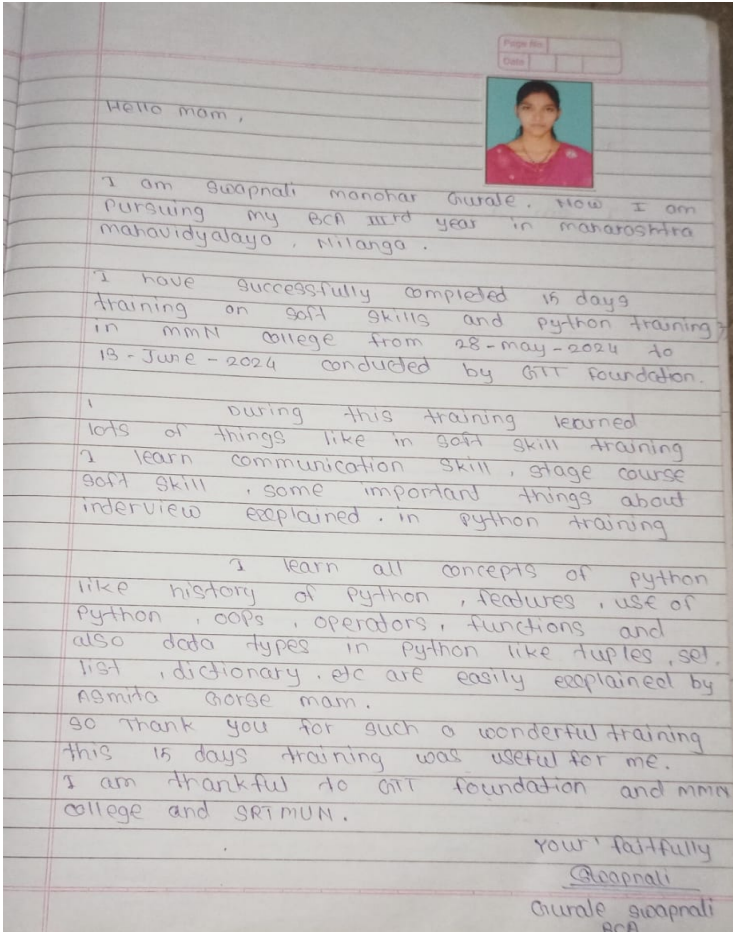 Page No.
Date
Hello mam,
I am Swapnali Manohar Gurale. Now I am
pursuing my BCA IIIrd year in maharashtra
mahavidyalaya, Nilanga.
I have successfully completed 15 days
training on soft skills and python training
in MMN college from 28-may-2024 to
13-June-2024 conducted by GTT foundation.
During this training learned
lots of things like in soft skill training
I learn communication skill, stage course
soft skill, some important things about
interview explained. in python training
I learn all concepts of python
like history of python, features, use of
python, oops, operators, functions and
also data types in python like tuples, set,
list, dictionary. etc are easily explained by
Asmita Gorse mam.
so thank you for such a wonderful training
this 15 days training was useful for me.
I am thankful to GTT foundation and MMN
college and SRTMUN.
Your' faitfully
Swapnali
Gurale swapnali
BCA